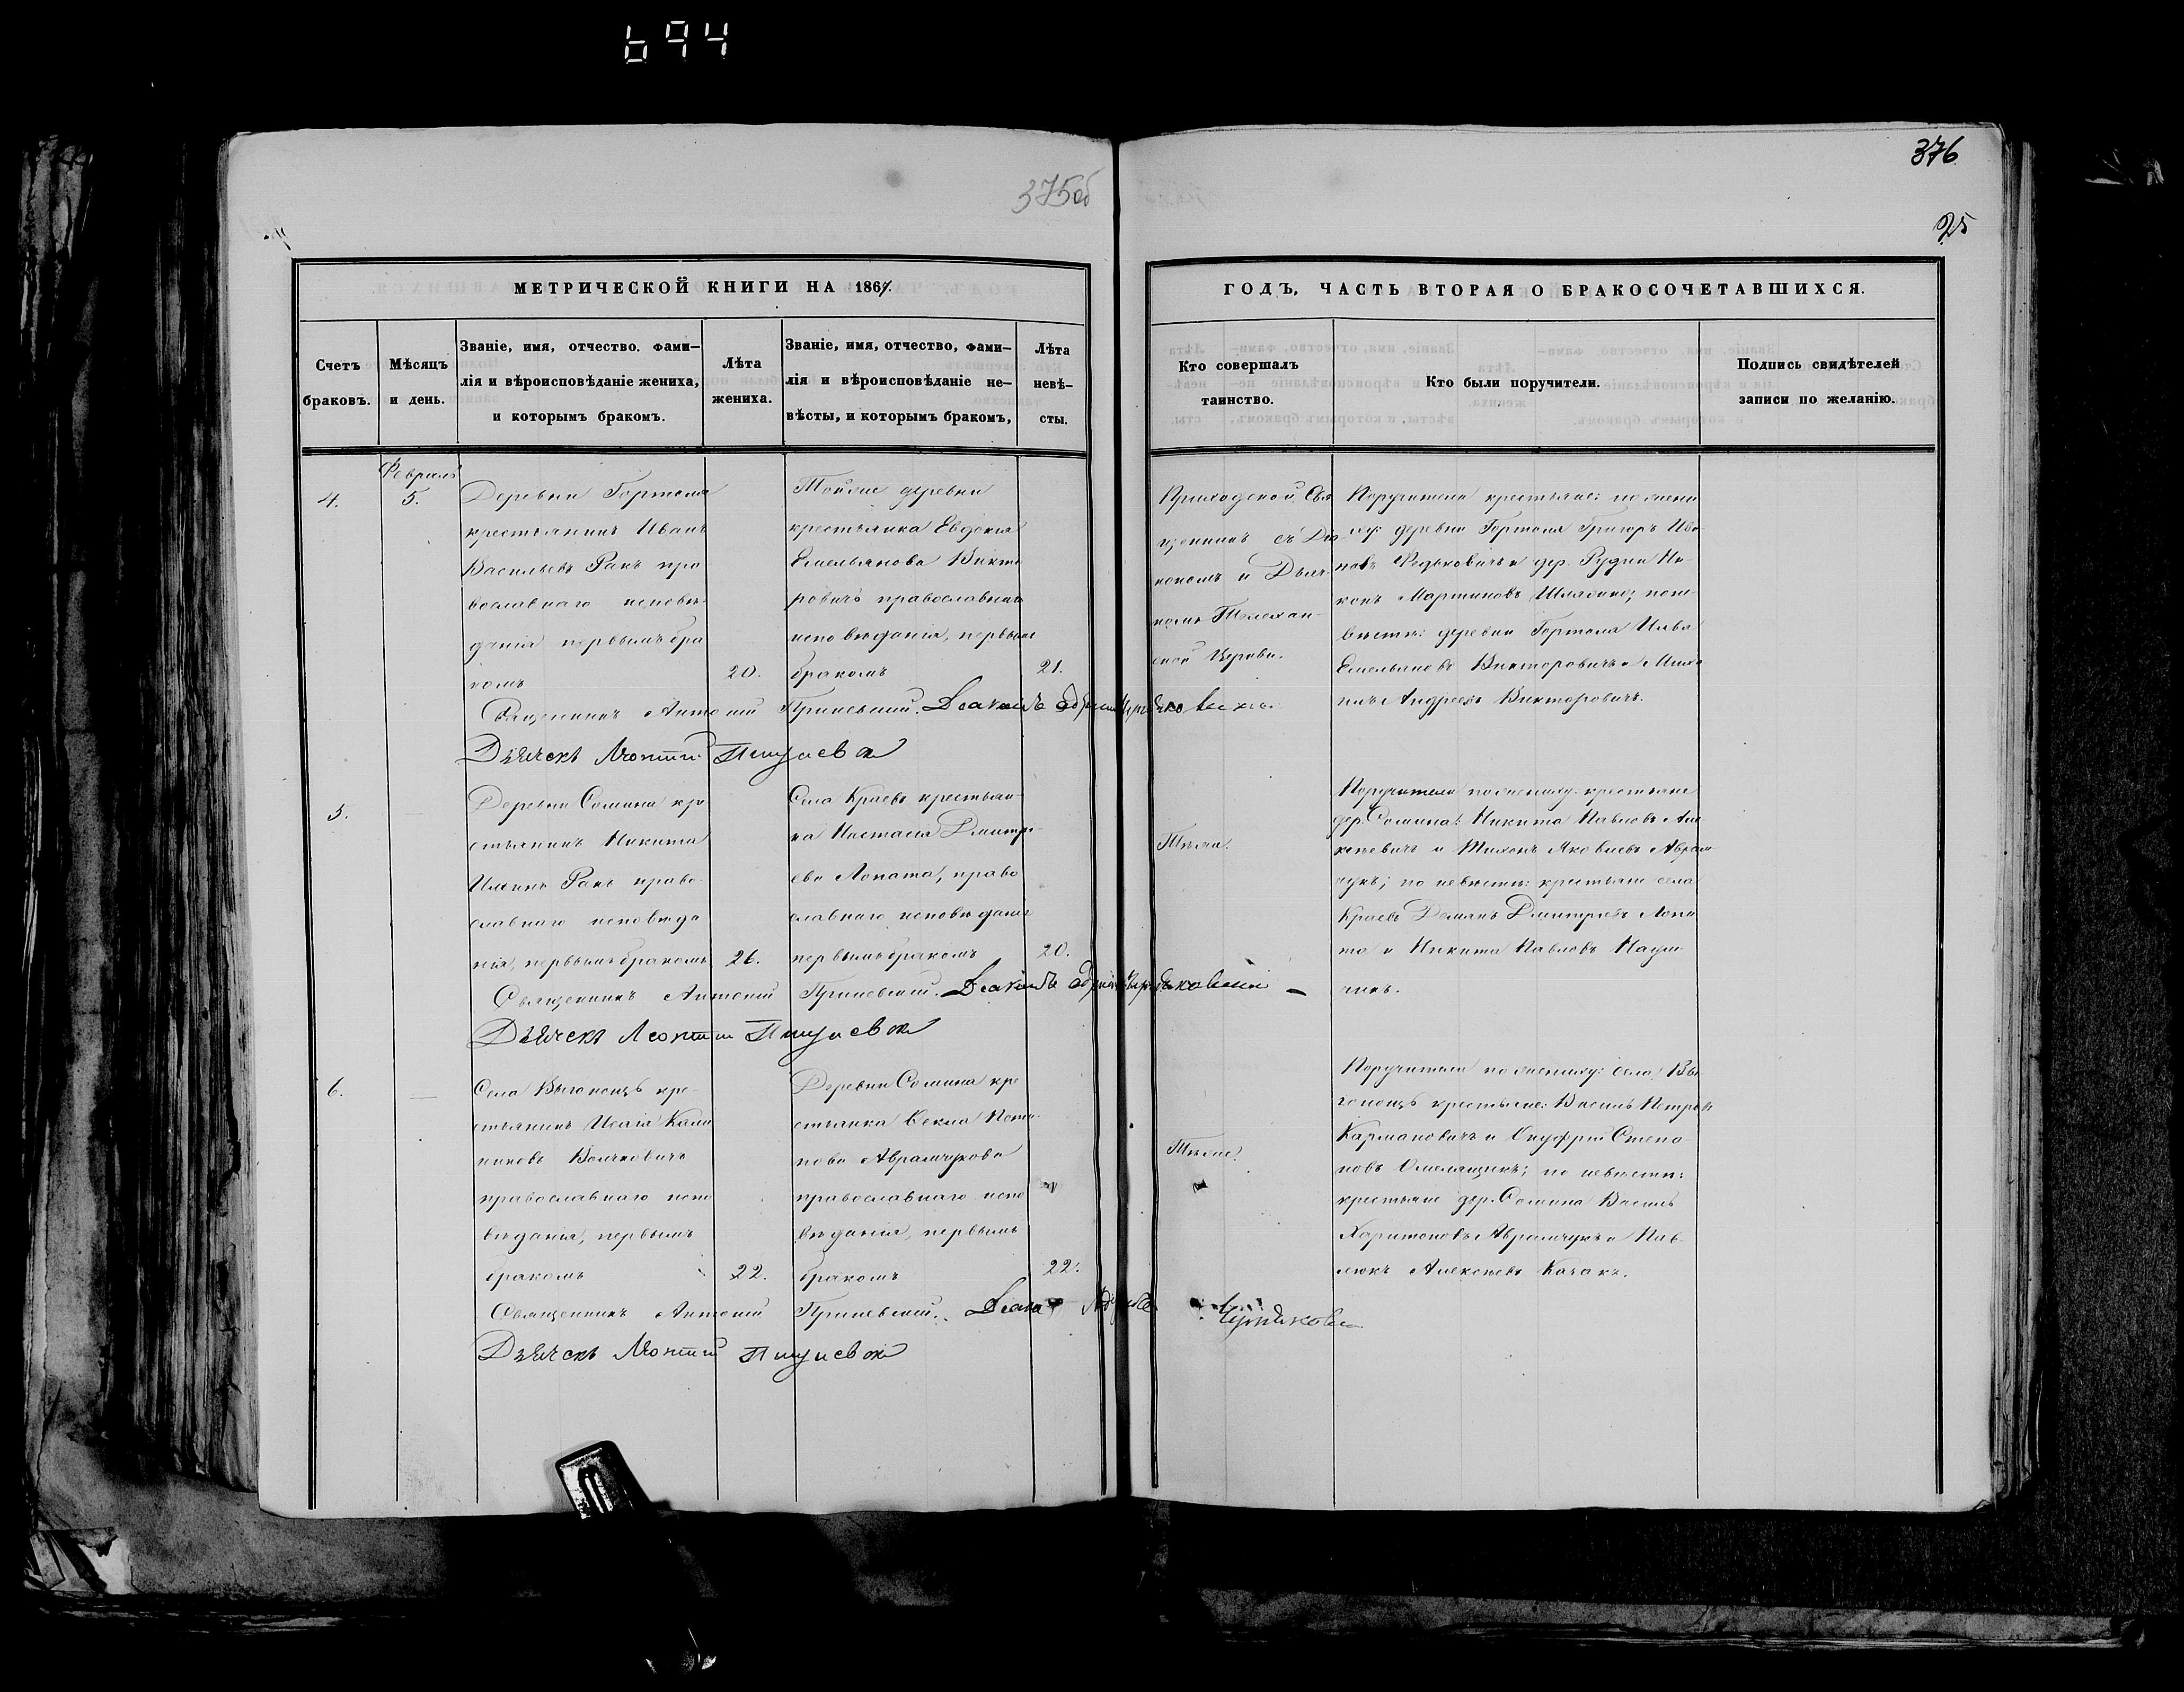 694
375об
376
25
МЕТРИЧЕСКОЙ КНИГИ НА 1867.
ГОДЪ, ЧАСТЬ ВТОРАЯ О БРАКОСОЧЕТАВШИХСЯ.
Счетъ браковъ.
Мѣсяцъ и день.
Званіе, имя, отчество. фами-
лія и вѣроисповѣданіе жениха,
и которымъ бракомъ.
Лѣта жениха.
Званіе, имя, отчество, фами-
лія и вѣроисповѣданіе не-
вѣсты, и которымъ бракомъ,
Лѣта невѣ-
сты.
Кто совершалъ
таинство.
Кто были поручители.
Подпись свидѣтелей
записи по желанію.
4.
Февраль
5.
Деревни Гортоля
крестьянинъ Иванъ
Васильевъ Ракъ пра
вославнаго исповѣ-
данія первымъ бра
комъ
20.
Тойже деревни
крестьянка Евдокія
Емельянова Викто
ровичъ православнаго
исповѣданія, первымъ
бракомъ
21.
Приходской Свя
щенникъ съ Діа-
кономъ и Дьяч-
комъ Телехан-
ской Церкви.
Поручители крестьяне: по жени
ху: деревни Гортоля Григоръ Ива-
новъ Федьковичъ и дер. Рудни Ни-
конъ Мартиновъ; по не-
вѣстѣ: деревни Гортоля Илья
Емельяновъ Викторовичъ и Миха
илъ Андреевъ Викторовичъ.
Священникъ Антоній Гриневский. Діаконъ
Дьячекъ Леонтій
5.
Деревни Сомина кре
стьянинъ Никита
Ильинъ Ракъ право-
славнаго исповѣда
нія, первымъ бракомъ
26.
Села Краевъ крестьян-
ка Настасія Дмитрі-
ева Лопата, право
славнаго исповѣданія
первымъ бракомъ
20.
Тѣже.
Поручители по жениху: крестьяне
дер. Сомина: Никита Павловъ Али
ксѣевичъ и Тихонъ Яковлевъ Аврам
чукъ; по невѣстѣ: крестьяне села
Краевъ Демянъ Дмитріевъ Лопа
та и Никита Павловъ Наум
чикъ.
Священникъ Антоній Гриневский. Діаконъ
Дьячекъ Леонтій
6.
Села Выгонощъ кре-
стьянинъ Исаія Кали
никовъ Волчковичъ
православнаго испо
вѣданія, первымъ
бракомъ
22.
Деревни Сомина кре
стьянка Фекла Пота-
пова Аврамчукова
православнаго испо
вѣданія, первымъ
бракомъ
22.
Тѣже.
Поручители по жениху: села Вы
гонощъ крестьяне: Василь Петровъ
Кармановичъ и Онуфрій Степа
новъ Омелянчикъ; по невѣстѣ:
крестьяне дер. Сомина Василь
Харитоновъ Аврамчукъ и Пав-
люкъ Алексѣевъ Качакъ.
Священникъ Антоній Гриневский.
Дьячекъ Леонтій